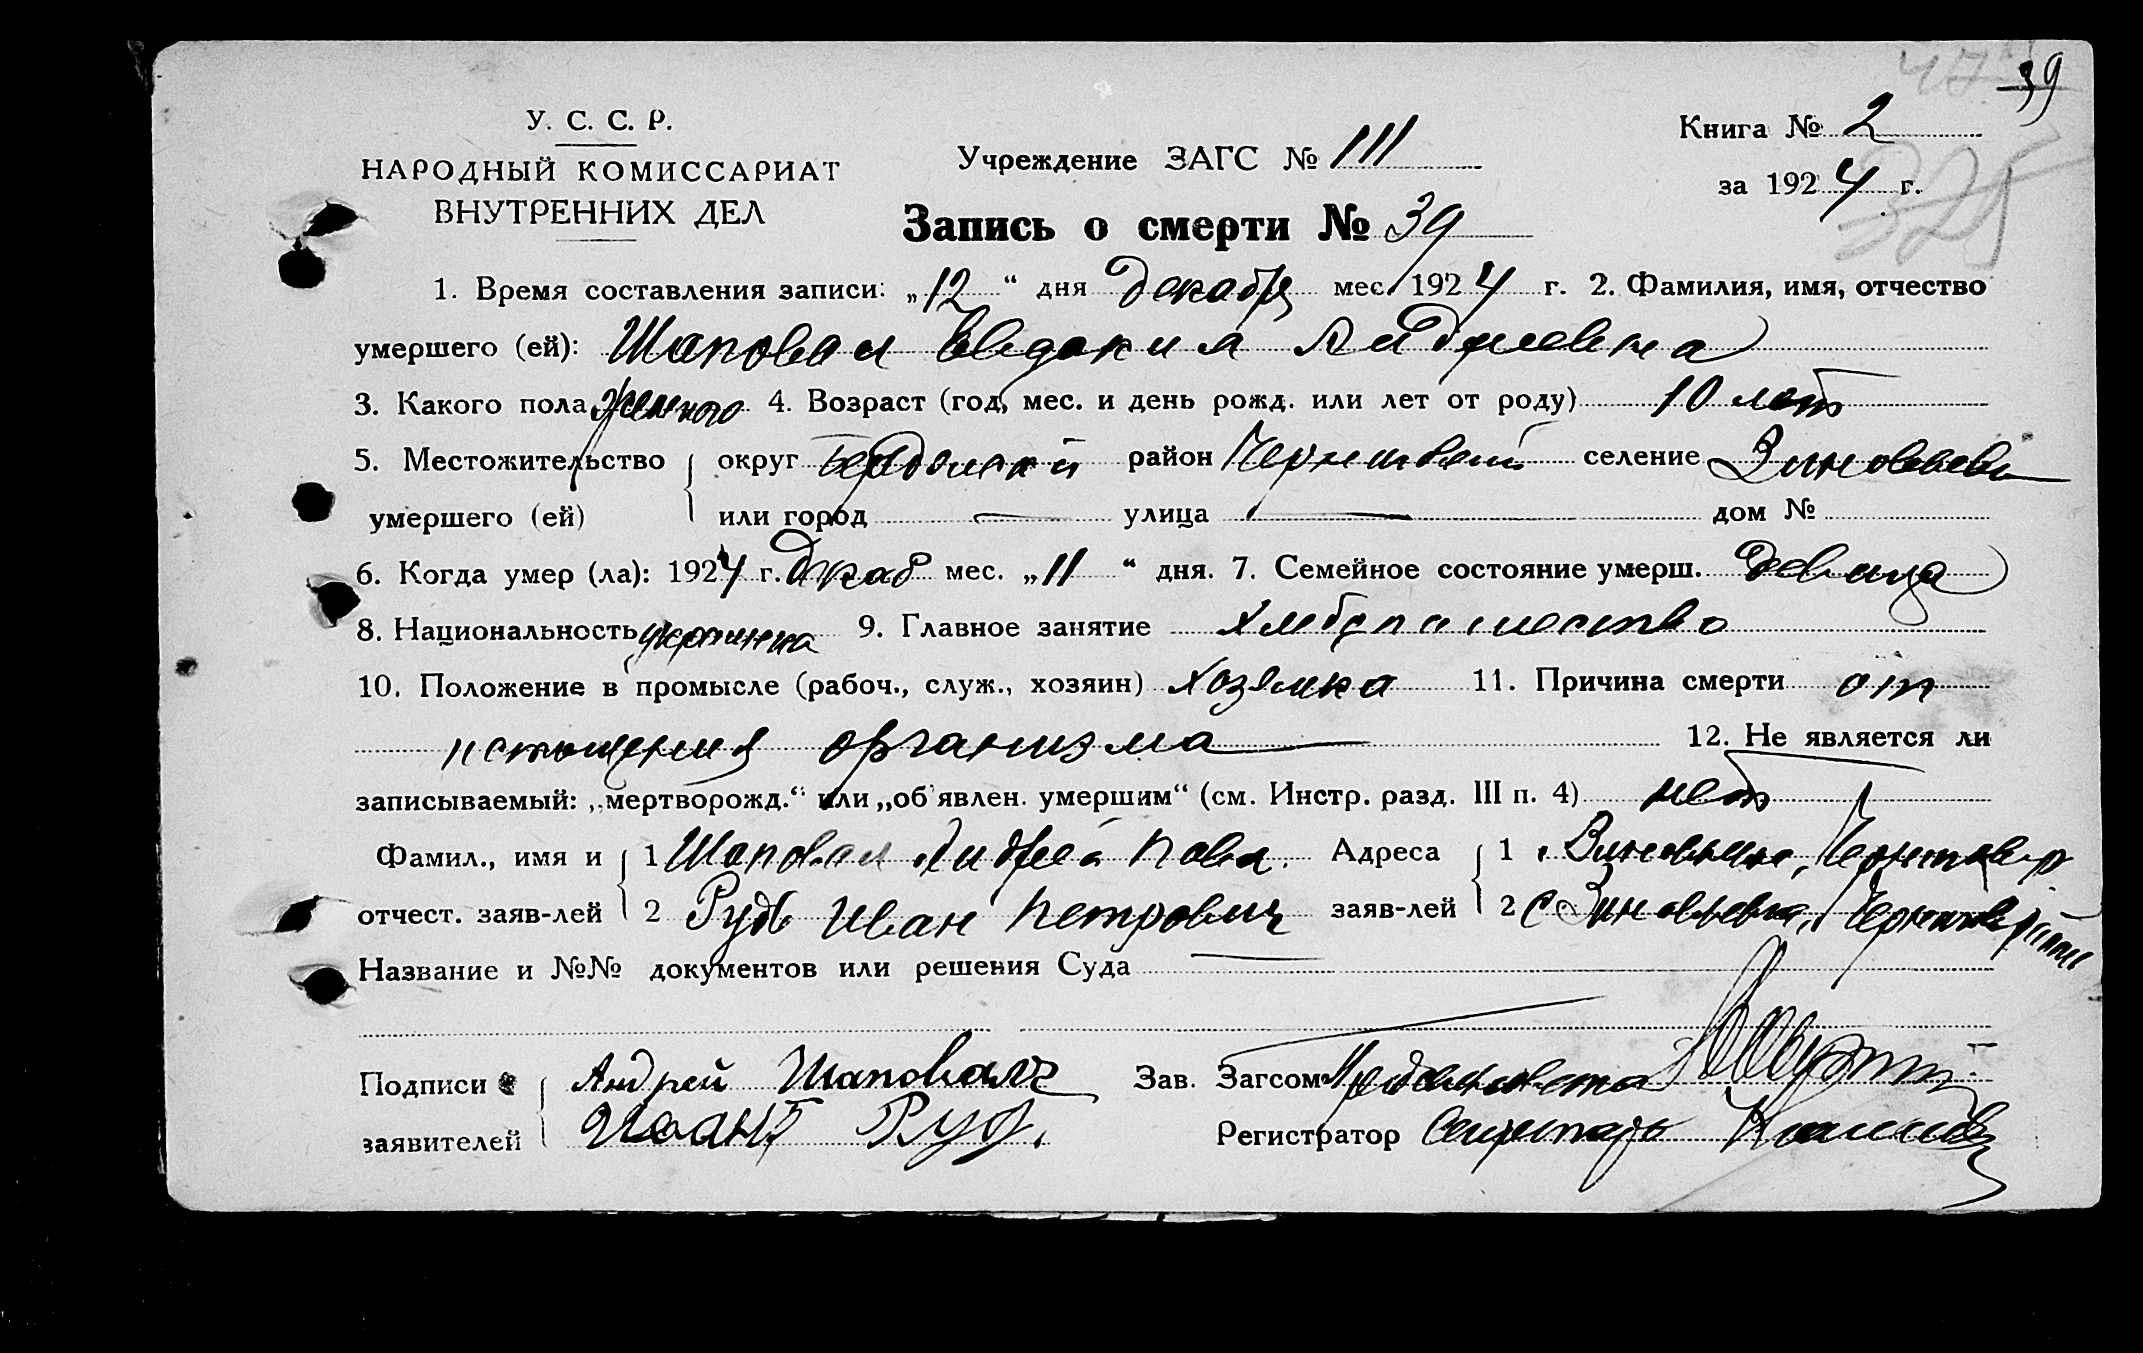 39
У. С. С. Р.
НАРОДНЫЙ КОМИССАРИАТ
ВНУТРЕННИХ ДЕЛ
Учреждение ЗАГС № 111
Книга № 2
за 1924 г.
325
Запись о смерти № 39
1. Время составления записи: „12“ дня декабря мес. 1924 г. 2. Фамилия, имя, отчество
умершего (ей): Шаповал Евдокия Андреевна
3. Какого пола женского 4. Возраст (год, мес. и день рожд. или лет от роду) 10 лет
5. Местожительство округ район селение
умершего (ей) или город — улица — дом №
6. Когда умер (ла): 1924 г. декаб мес. „11“ дня. 7. Семейное состояние умерш. девица
8. Национальность украинка 9. Главное занятие хлебопашество
10. Положение в промысле (рабоч., служ., хозяин) хозяйка 11. Причина смерти от
истощения организма 12. Не является ли
записываемый: „мертворожд.“ или „об'явлен. умершим“ (см. Инстр. разд. III п. 4) нет
Фамил., имя и 1 Шаповал Андрей Павл. Адреса 1
отчест. заяв-лей 2 Рудь Иван Петрович заяв-лей 2 с Зиновьевка,
Название и №№ документов или решения Суда —
Подписи Андрей Шаповалъ Зав. Загсом
заявителей Иванъ Руд. Регистратор Секретарь